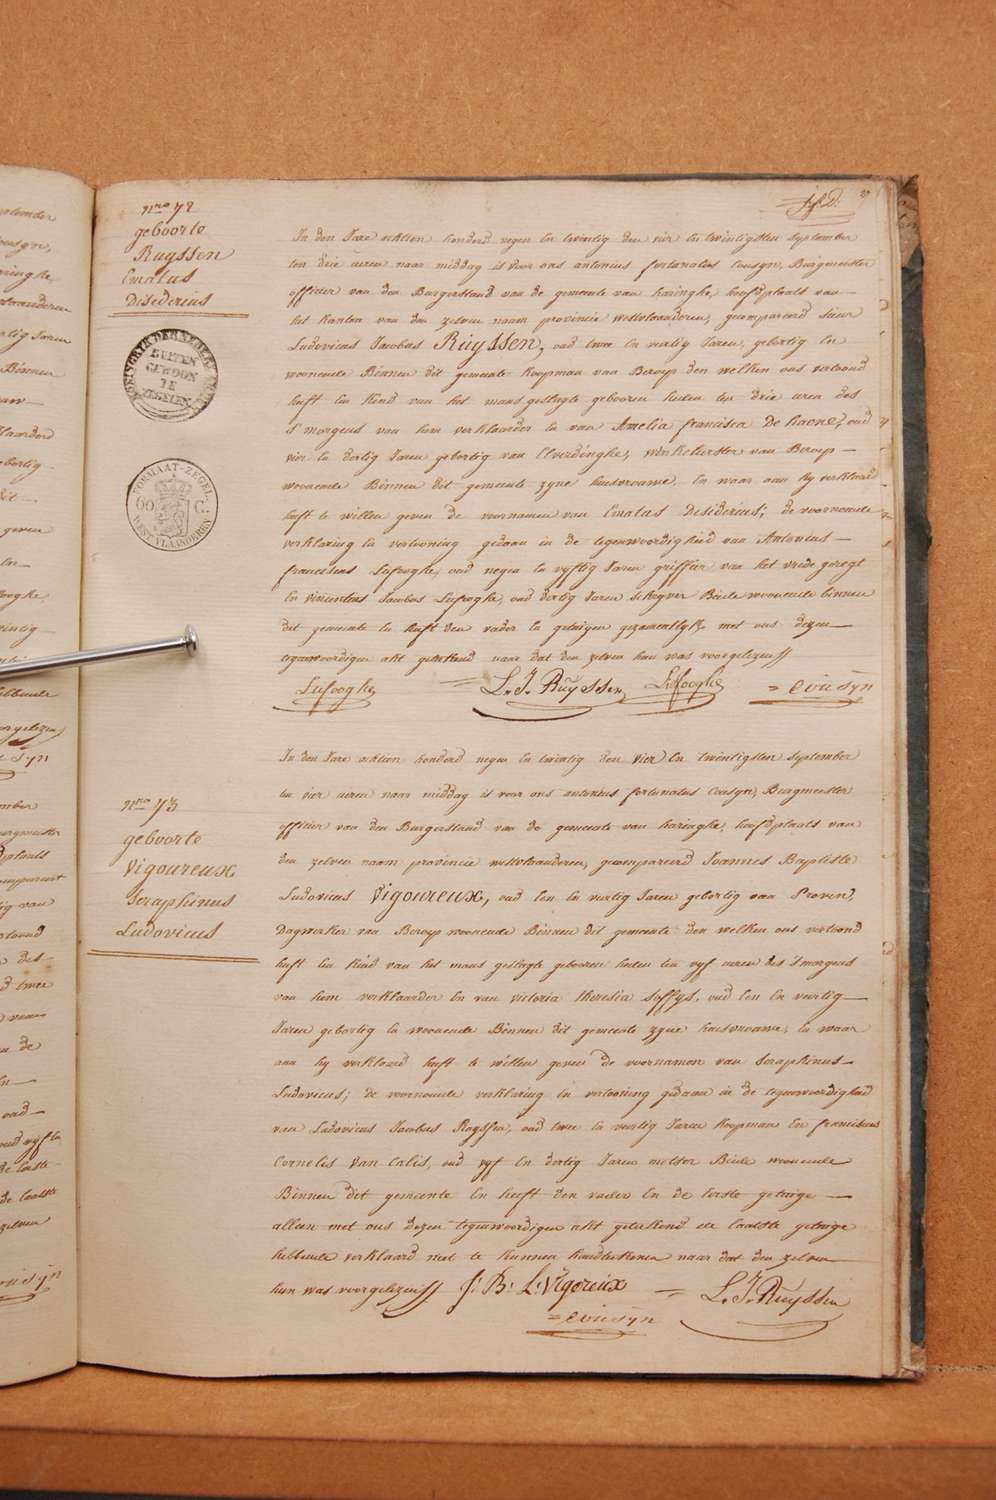 nro 72
geboorte
Ruyssen
Ematus
Disiderius
KONINGRYK DER NEDERLANDEN
BUITEN
GEWOON
TE
ZEGELEN
FORMAAT-ZEGEL
60 C:
WEST VLAANDEREN
In den Jare achtien honderd negen En twintig den vier En twintigsten September
ten drie uren naar middag is voor ons antonius fortunatus Cousyn, Burgmeester
officier van den Burgerstand van de gemeente van haringhe, hoofdplaats van
het kanton van den zelven naam provincie westvlaanderen, gecompareerd sieur
Ludovicus Jacobus Ruyssen, oud twee En vertig Jaren, gebortig En
woonende Binnen dit gemeente koopman van Beroep den welken ons vertoond
heeft Een kind van het mans geslagte gebooren heden ten drie uren des
s'morgens van hem verklaarder En van Amelia francisca De haene, oud
vier En dertig Jaren gebortig van Elverdinghe, winkelierster van Beroep
woonende Binnen dit gemeente zyne huisvrouwe, En waar aan hy verklaard
heeft te willen geven de voornamen van Ematus Disiderius; de voornoemde
verklaring En vertooning gedaan in de tegenwoordigheid van Antonius
franciscus Lefooghe, oud negen En vyftig Jaren griffier van het vrede geregt
En vincentius Jacobus Lefooghe, oud dertig Jaren schryver Beide woonende binnen
dit gemeente En heeft den vader En getuigen gezamentlyk met ons dezen
tegenwoordigen akt geteekend naar dat den zelven hun was voorgelezen
Lefooghe = L. J. Ruyssen Lefooghe = Cousyn
nro 73
geboorte
Vigoureux
Seraphinus
Ludovicus
In den Jare achtien honderd negen En twintig den vier En twintigsten September
ten vier uren naar middag is voor ons antonius fortunatus Cousyn, Burgmeester
officier van den Burgerstand van de gemeente van haringhe, hoofdplaats van
den zelven naam provincie westvlaanderen, gecompareerd Joannes Baptiste
Ludovicus Vigoureux, oud Een En vertig Jaren gebortig van Proven,
Dagwerker van Beroep woonende Binnen dit gemeente den welken ons vertoond
heeft Een kind van het mans geslagte gebooren heden ten vyf uren des s'morgens
van hem verklaarder En van victoria theresia soffys, oud Een En veertig
Jaren gebortig En woonende Binnen dit gemeente zyne huisvrouwe, En waar
aan hy verklaard heeft te willen geven de voornamen van Seraphinus
Ludovicus; de voornoemde verklaring En vertooning gedaan in de tegenwoordigheid
van Ludovicus Jacobus Ruyssen, oud twee En veertig Jaren koopman En franciscus
Cornelis Van Calis, oud vyf En dertig Jaren metser Beide woonende
Binnen dit gemeente En heeft den vader En de Eerste getuige
alleen met ons dezen tegenwoordigen akt geteekend de laatste getuige
hebbende verklaard niet te kunnen handteekenen naar dat den zelven
hun was voorgelezen J: B: L: Vigoreux = L. J. Ruyssen
= Cousyn